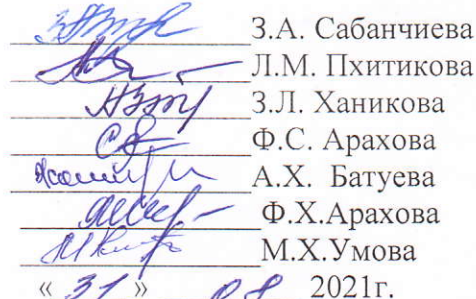 З.А. Сабанчиева
Л.М. Пхитикова
З.Л. Ханикова
Ф.С. Арахова
А.Х. Батуева
Ф.Х.Арахова
М.Х.Умова
« 31 » 08 2021г.